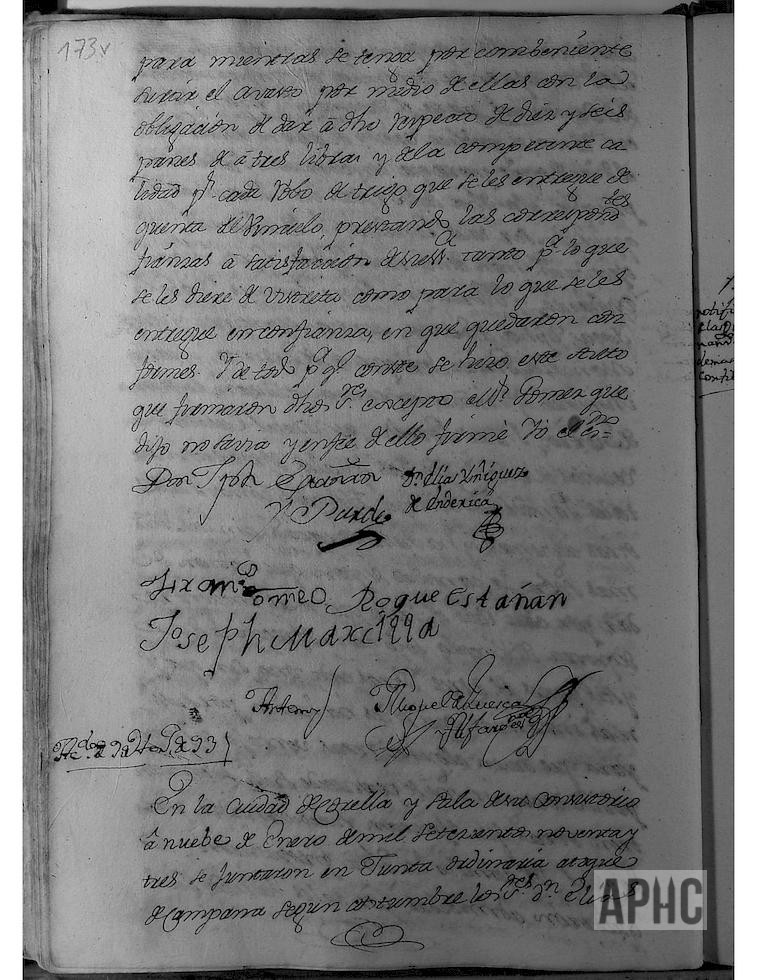 173v
para mientras se tenga por combeniente
surtir el avasto por medio de ellas con la
obligacion de dar â dho respecto de diez y seis
panes de â tres libras y de la competente ca
lidad pr. cada Robo de trigo que se les entregue de
quenta del Vinculo, prestando las correspondtes
fianzas â satisfaccion de ussa. tanto pa. lo que
se les diere de como para lo que se les
entregue en confianza, en que quedaron con
formes. Y de todo pa. qe. conste se hizo este Auto
que firmaron dhos Sres. excepto el Sr. Gomez que
dijo no savia y en fee de ello firmé Yo el esno=
Don Españon Dn. Elias Yñiguez
Y Pardo de Enderica
Franco Romeo Roque Estañan
Joseph Marcilla
Antemy Miguel de Luesca
Alfaro esno
En la Ciudad de Corella y Sala de su Consultorio
â nuebe de Enero de mil setecientos noventa y
tres se juntaron en Junta ordinaria atoque
de Campana segun costumbre los Sres. Dn. Elias
APHC